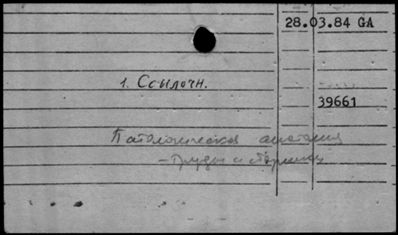 28.03.84 GA
1. Ссылочн.
39661
Патологическая анатомия
- Труды и сборники